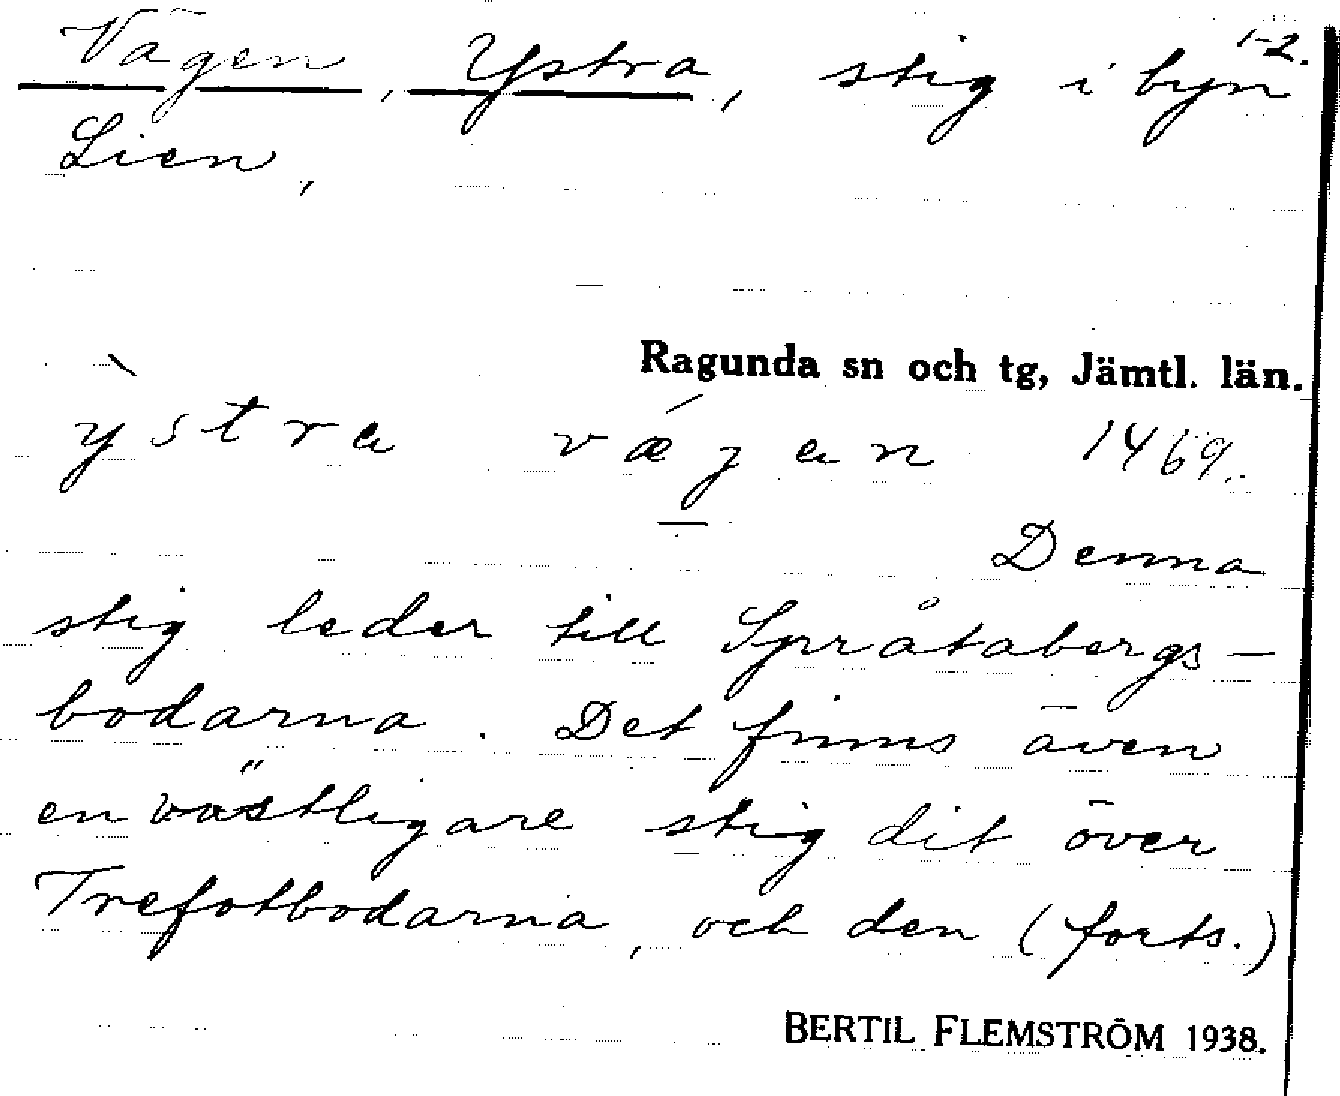 1-2.
Vägen, Ystra, stig i byn
Lien,
Ragunda sn och tg, Jämtl. län.
ỳstra vǽgen 1469.
Denna
stig leder till Språtabergs-
bodarna. Det finns även
en västligare stig dit över
Trefotbodarna, och den (forts.)
BERTIL FLEMSTRÖM 1938.